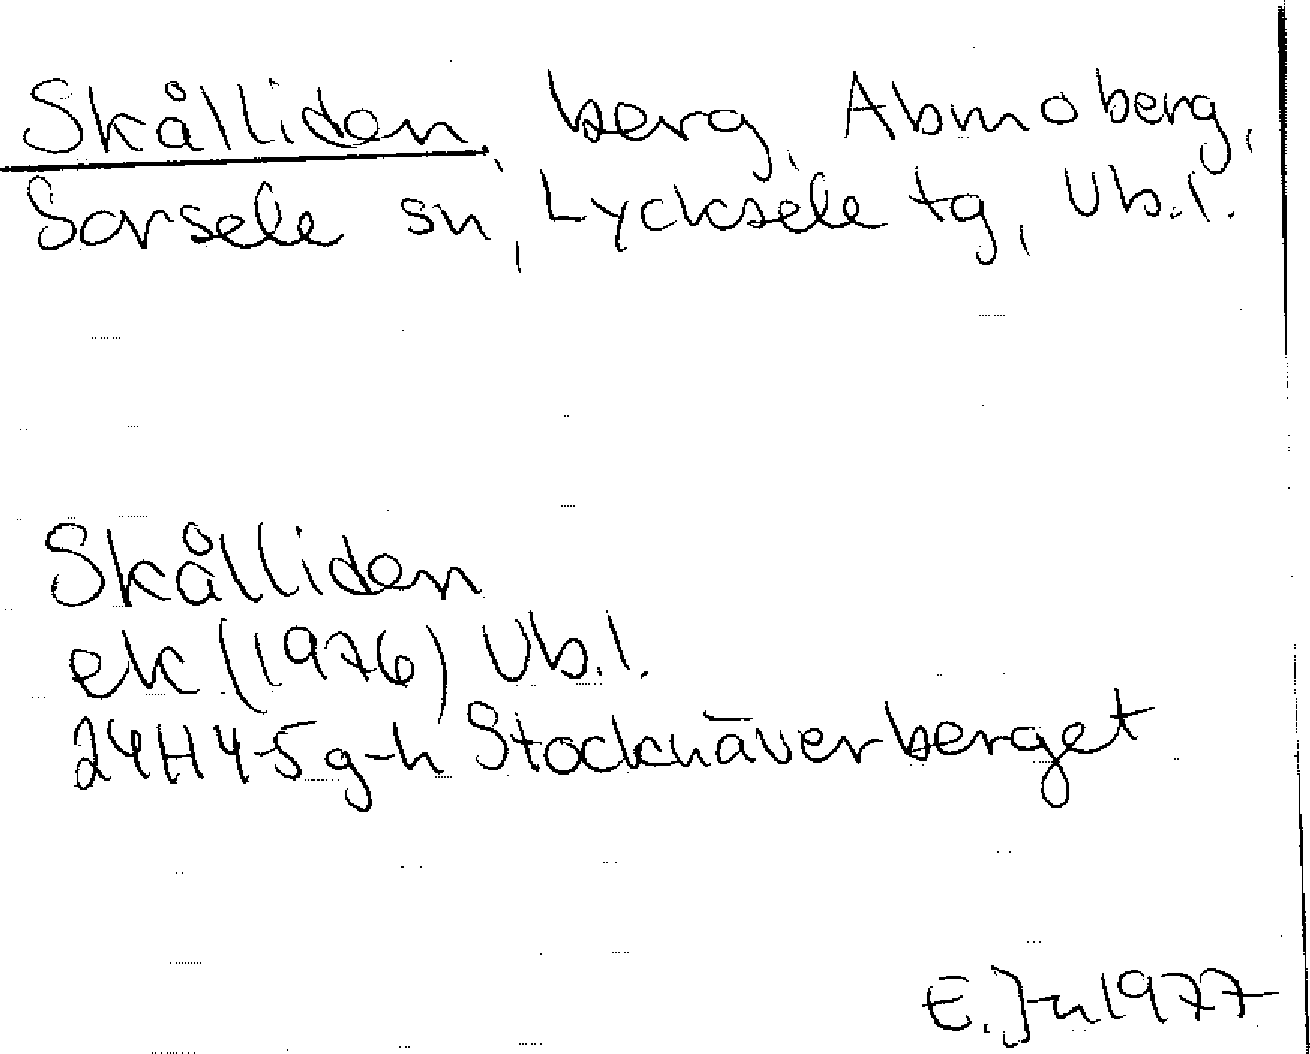 Skålliden, berg, Abmoberg,
Sorsele sn, Lycksele tg, Vb.l.
Skålliden
ek (1976) Vb.l.
24H4-5g-h Stocknäverberget
E. J-n 1977